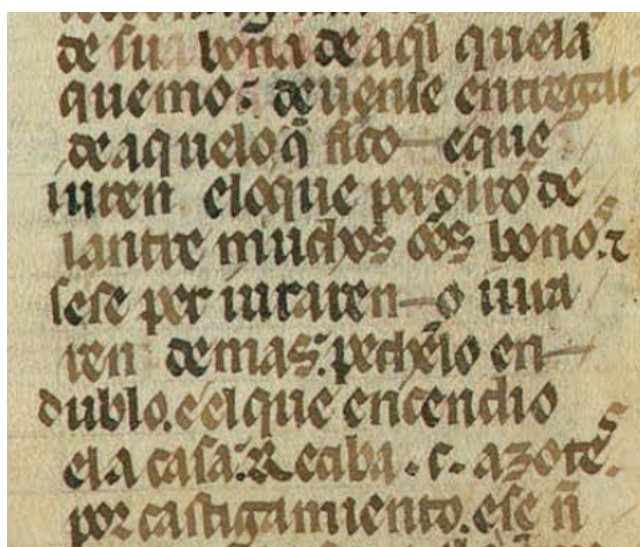 de sua bõna de aql̃ quela
quemo: deuense entregar
de aquelo q̃ fico – eque
iuren eloque perdirõ de
lantre muchos oẽs bonos. ⁊
sese per iuraren – o iura
ren demas: pechelo en –
dublo. e el que encendio
ela casa: Reciba · c · azotes.
por castigamiento. ese ñ